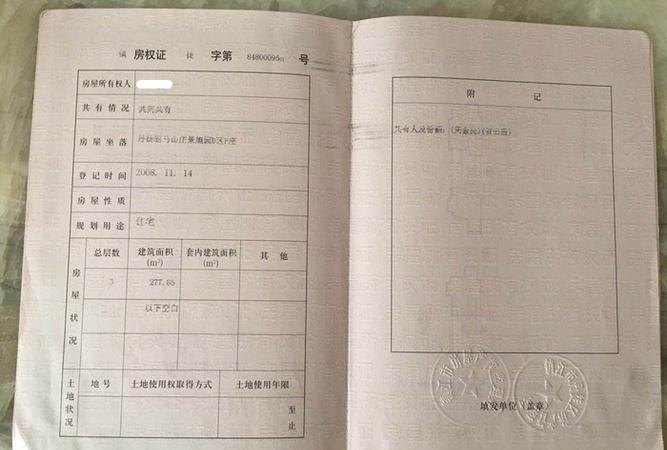 镇 房权证 徒 字第 84800095 号
房屋所有权人
共有情况 共同共有
房屋坐落
登记时间 2008. 11. 14
房屋性质
规划用途 住宅
房屋状况
总层数 建筑面积(m²) 套内建筑面积(m²) 其他
3 277.85
以下空白
土地状况
地号 土地使用权取得方式 土地使用年限
至
止
附 记
共有人及份额:
填发单位(盖章)